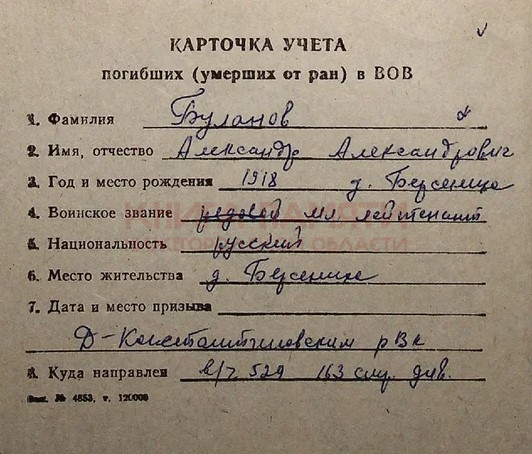 КАРТОЧКА УЧЕТА
погибших (умерших от ран) в ВОВ
1. Фамилия Буланов
2. Имя, отчество Александр Александрович
3. Год и место рождения 1918 д. Берсенице
4. Воинское звание рядовой мл лейтенант
КНИГА ПАМЯТИ
5. Национальность русский
ОБЛАСТИ
6. Место жительства д. Берсенице
7. Дата и место призыва
Д-Константиновским рВк
8. Куда направлен в/ч 529 163 стр. див.
Зак. № 4853, т. 120000